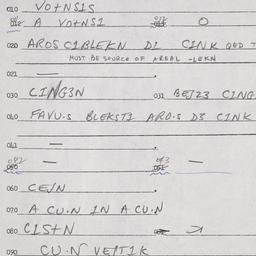 010 VO+NS1S
012 A VO+NS1 013 O
020 AROS C1BLEKN D1 C1NK QED T
MUST BE SOURCE OF AREAL -LEKN
021 —
030 C1NG3N 031 BEJZ3 C1NG
060 FAVU.S BLEKST1 ARO.S D3 C1NK
061 —
062 — 063 —
060 CEJN
070 A CU.N 1N A CU.N
080 C1S+N
090 CU.N VE/T1K